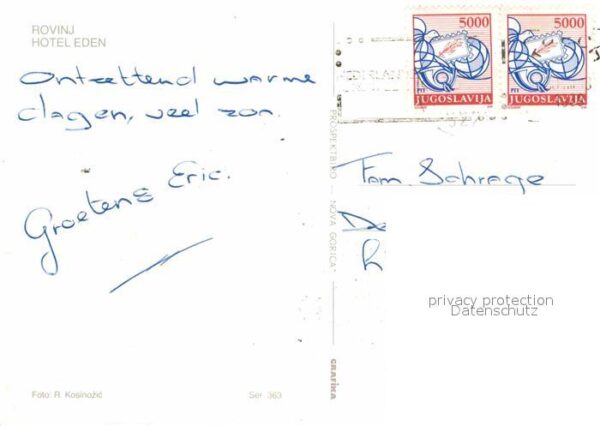 ROVINJ
HOTEL EDEN
Ontzettend warme
dagen, veel zon.
Groetens Eric.
Foto: R. Kosinožić
Ser. 363
PROSPEKTBIRO - NOVA GORICA
GRAFIKA
5000
PTT
JUGOSLAVIJA
5000
PTT
JUGOSLAVIJA
Fam. Schrage
De
privacy protection
Datenschutz